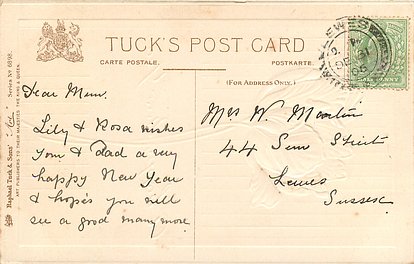 TUCK'S POST CARD
CARTE POSTALE.
POSTKARTE.
(FOR ADDRESS ONLY.)
Dear Mum.
Lily & Rosa wishes
you & Dad a very
happy New Year
& hopes you will
see a good many more
Mrs W. Martin
44 Sun Street
Lewes
Sussex
Raphael Tuck & Sons'
Series Nº
ART PUBLISHERS TO THEIR MAJESTIES THE KING & QUEEN.
LEWES